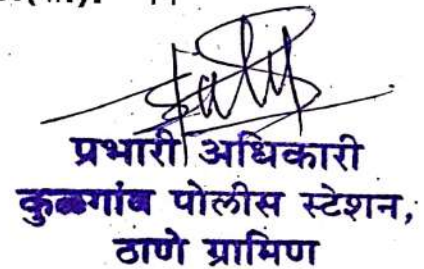 प्रभारी अधिकारी
कुळगांव पोलीस स्टेशन,
ठाणे ग्रामिण